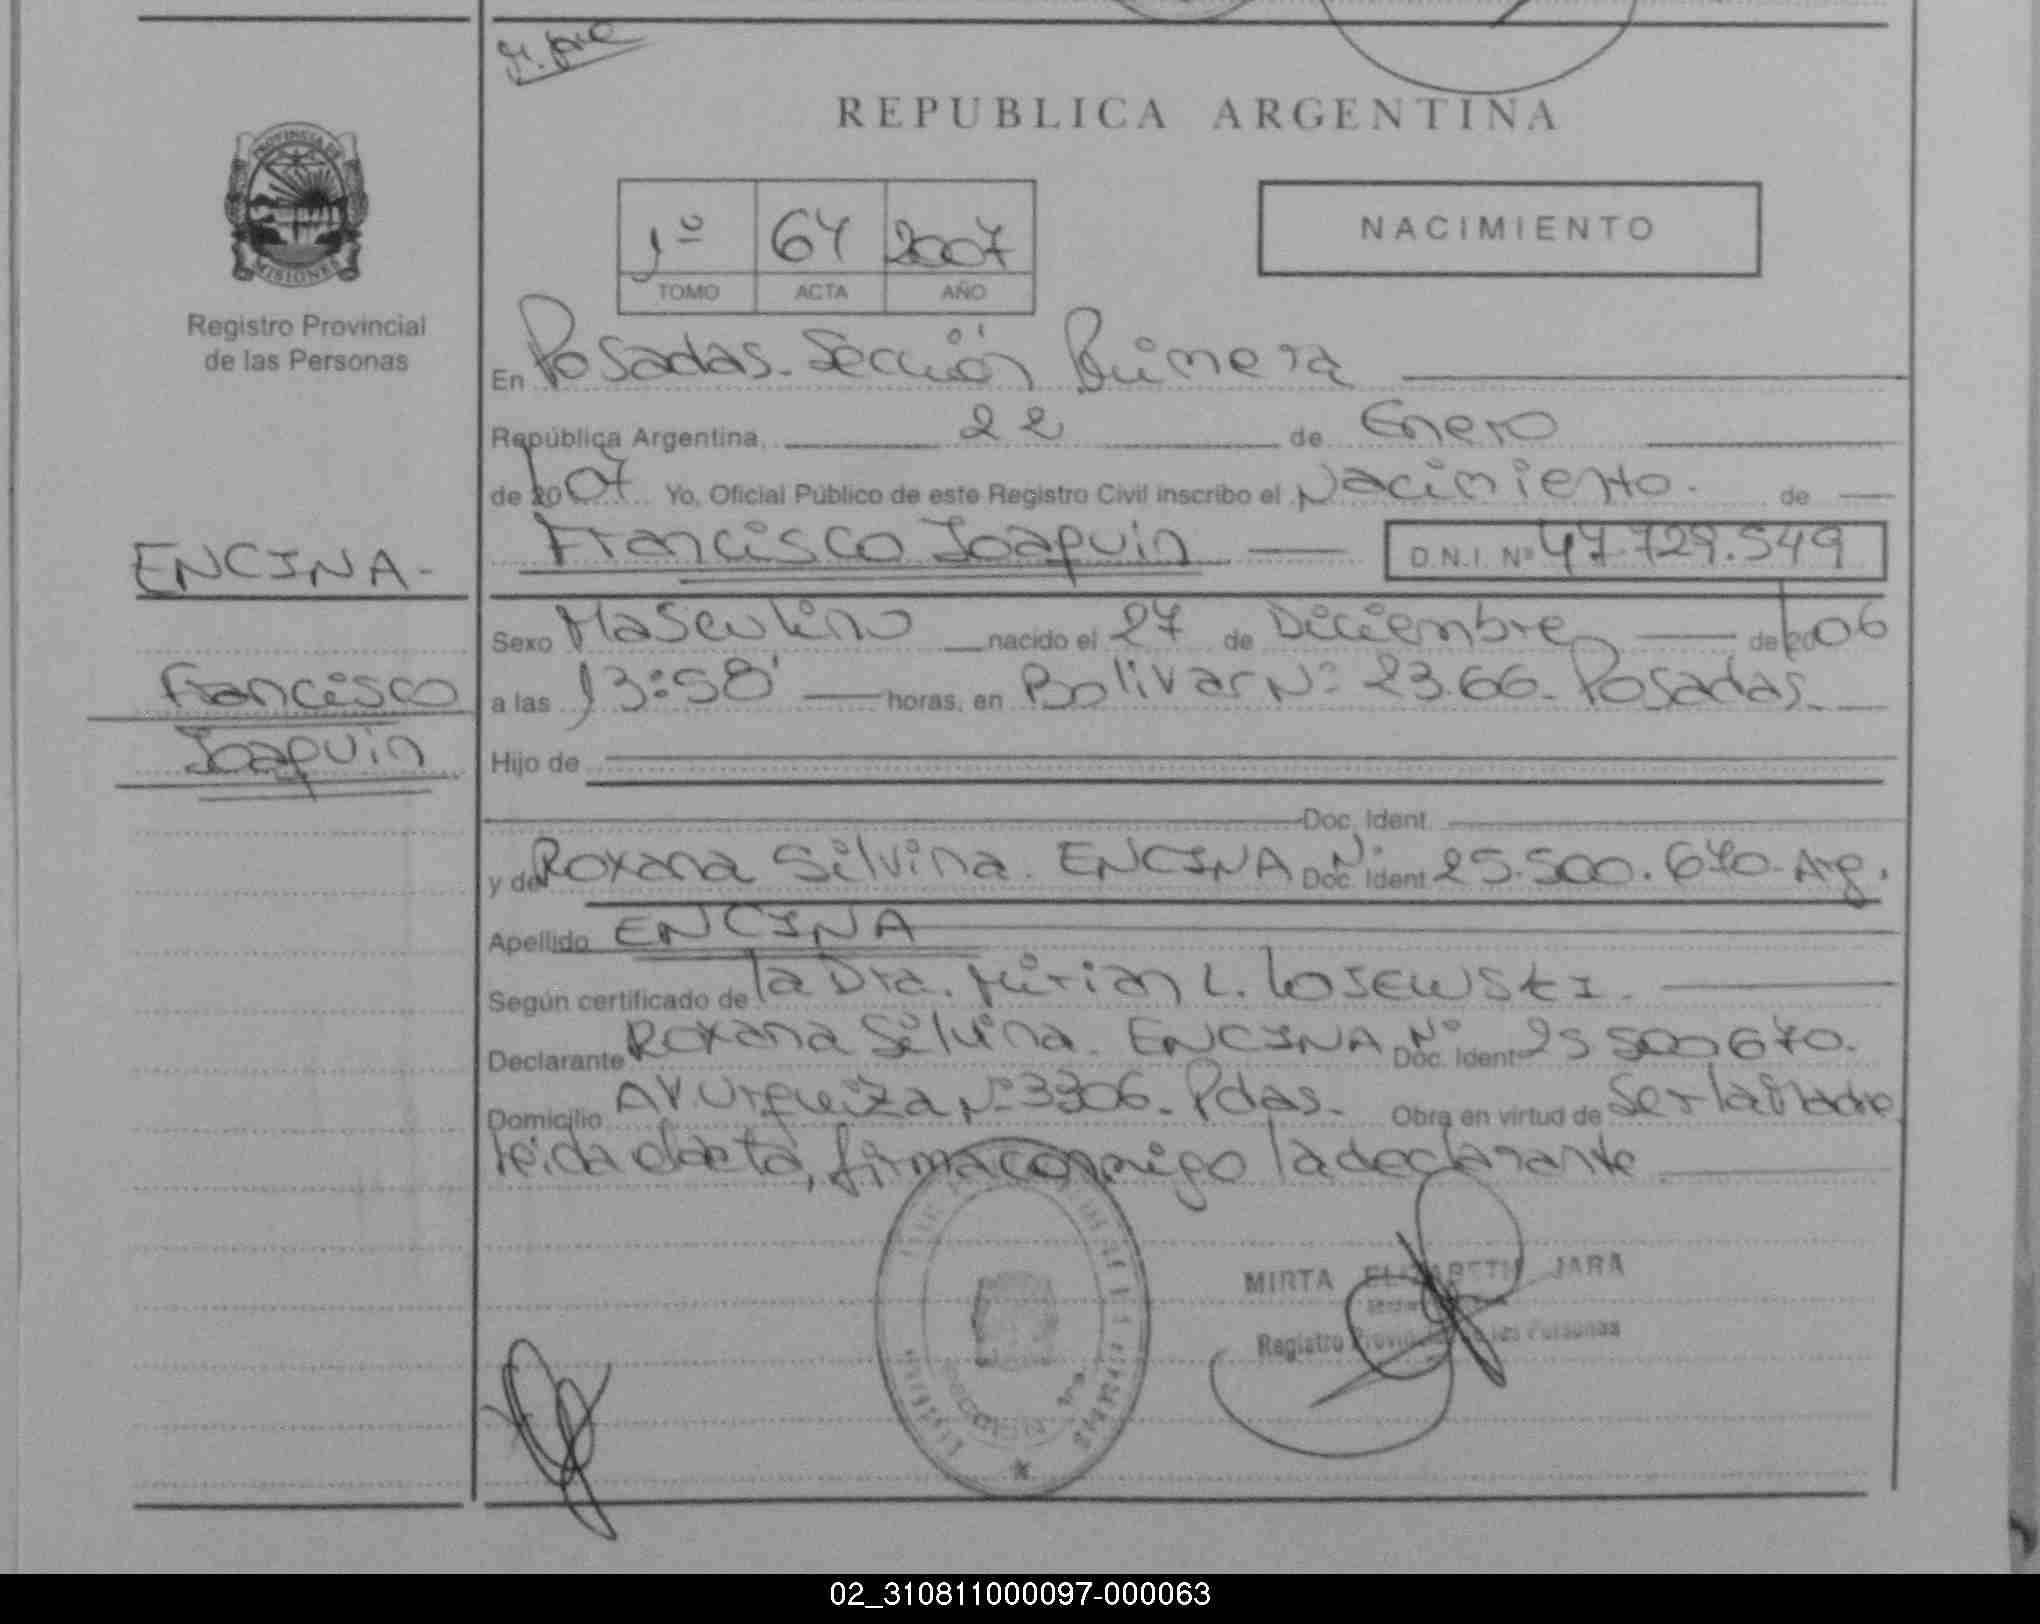 REPUBLICA ARGENTINA
PROVINCIA DE
MISIONES
Registro Provincial
de las Personas
1º 64 2007
TOMO ACTA AÑO
NACIMIENTO
En Posadas. Sección Primera
República Argentina, 22 de Enero
de 2007 Yo, Oficial Público de este Registro Civil inscribo el Nacimiento. de
Francisco Joaquin D.N.I. Nº 47.729.549
ENCINA-
Francisco
Joaquin
Sexo Masculino nacido el 27 de Diciembre de 2006
a las 13:58' horas, en Bolivar Nº 2366. Posadas.
Hijo de
Doc. Ident.
y de Roxana Silvina. ENCINA Doc. Ident. Nº 25.500.670. Arg.
Apellido ENCINA
Según certificado de la Dra. Mirian L. Losewski.
Declarante Roxana Silvina. ENCINA Doc. Ident. Nº 25500670.
Domicilio AV. Urquiza Nº 3306. Pdas. Obra en virtud de Ser la Madre
leida el acta, firma conmigo la declarante
MIRTA ELIZABETH JARA
Registro Provincial de las Personas
02_310811000097-000063